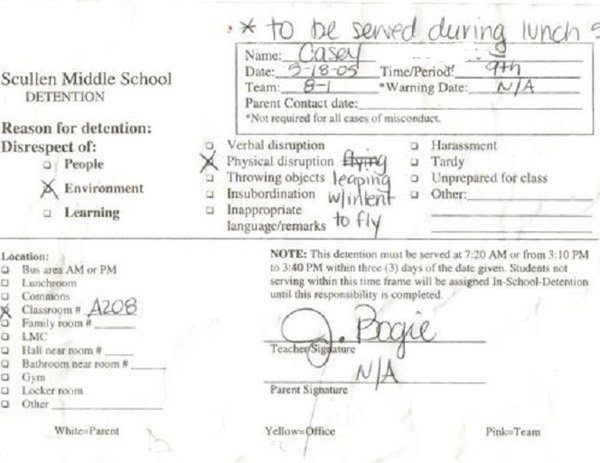 * to be served during lunch
Scullen Middle School
DETENTION
Name: Casey
Date: 5-18-05 Time/Period: 9th
Team: 8-1 *Warning Date: N/A
Parent Contact date:
*Not required for all cases of misconduct.
Reason for detention:
Disrespect of:
People
Environment
Learning
Verbal disruption
Physical disruption flying
Throwing objects leaping
Insubordination w/intent
Inappropriate to fly
language/remarks
Harassment
Tardy
Unprepared for class
Other:
Location:
Bus area AM or PM
Lunchroom
Commons
Classroom # A208
Family room #
LMC
Hall near room #
Bathroom near room #
Gym
Locker room
Other
NOTE: This detention must be served at 7:20 AM or from 3:10 PM
to 3:40 PM within three (3) days of the date given. Students not
serving within this time frame will be assigned In-School-Detention
until this responsibility is completed.
J. Bogie
Teacher Signature
N/A
Parent Signature
White=Parent
Yellow=Office
Pink=Team